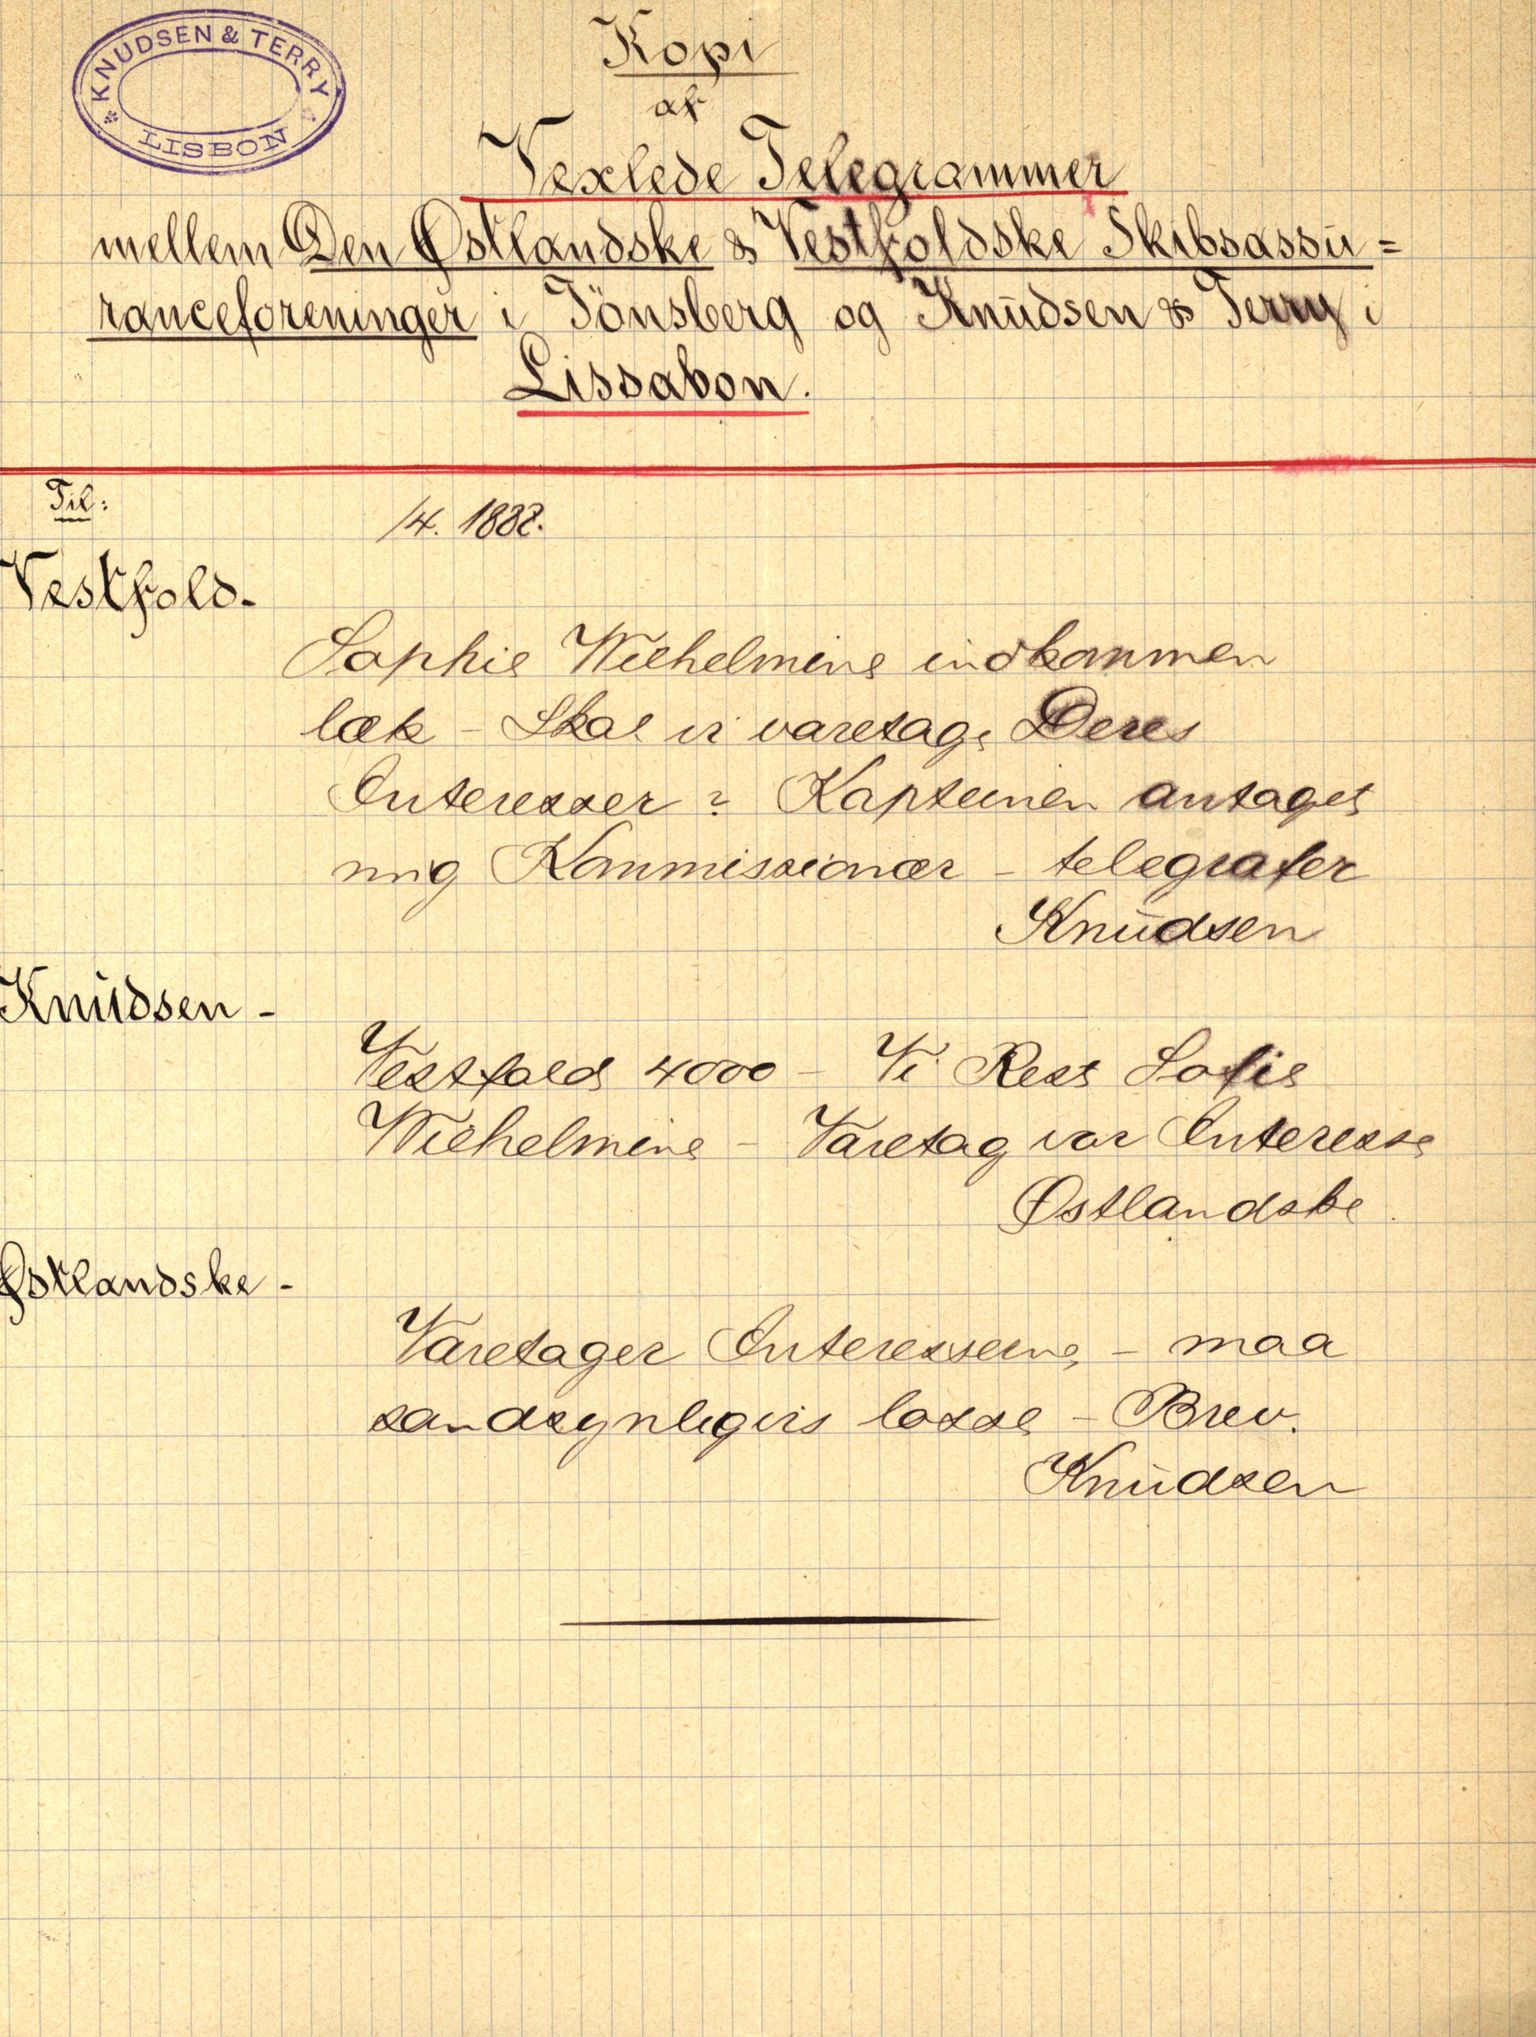 KNUDSEN & TERRY
LISBON
Kopi
af
Vexlede Telegrammer
mellem Den Østlandske & Vestfoldske Skibsassu=
ranceforeninger i Tönsberg og Knudsen & Terry i
Lissabon.
Til:
/4. 1882.
Vestfold.
Sophie Wilhelmine indkommen
læk - Skal vi varetage Deres
Interesser? Kapteinen antaget
mig Kommissionær - telegrafer
Knudsen
Knudsen -
Vestfold 4000 - Vi Rest Sofie
Wilhelmine - Varetag vor Interesse
Østlandske
Østlandske -
Varetager Interesserne, - maa
sandsynligvis losse - Brev.
Knudsen